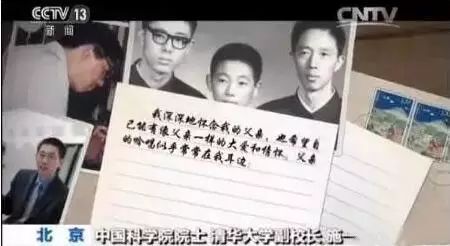 CCTV 13
新闻
CNTV
我深深地怀念我的父亲，也希望自
己能有像父亲一样的大爱和情怀。父亲
的吟唱似乎常常在我耳边。
北京
中国科学院院士 清华大学副校长 施一